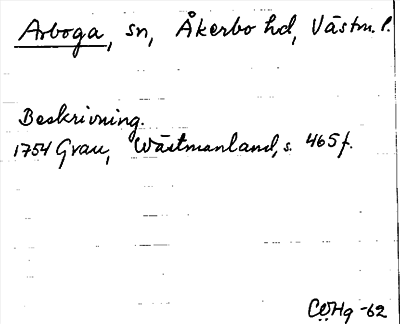 Arboga, sn, Åkerbo hd, Västm. l.
Beskrivning.
1754 Grau, Wästmanland, s. 465 f.
CWHg -62